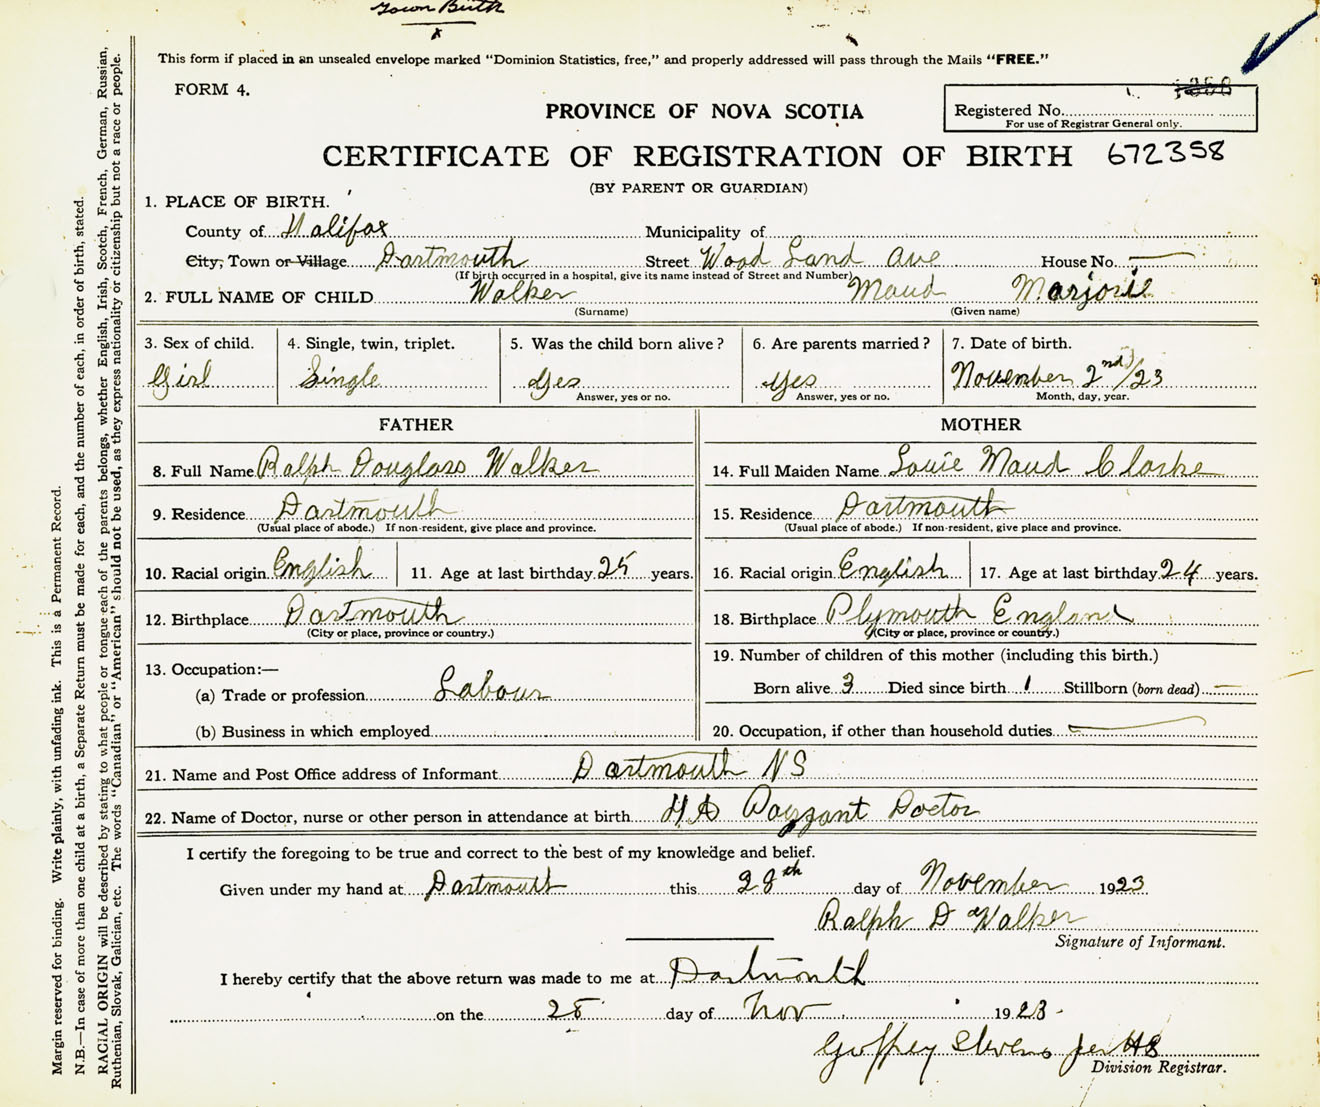 Town Birth
x
This form if placed in an unsealed envelope marked "Dominion Statistics, free," and properly addressed will pass through the Mails "FREE."
FORM 4.
PROVINCE OF NOVA SCOTIA
Registered No.
For use of Registrar General only.
CERTIFICATE OF REGISTRATION OF BIRTH 672358
(BY PARENT OR GUARDIAN)
1. PLACE OF BIRTH.
County of Halifax Municipality of
City, Town or Village Dartmouth Street Wood Land Ave House No. —
(If birth occurred in a hospital, give its name instead of Street and Number)
2. FULL NAME OF CHILD Walker Maud Marjorie
(Surname) (Given name)
3. Sex of child. 4. Single, twin, triplet. 5. Was the child born alive? 6. Are parents married? 7. Date of birth.
Girl Single Yes Yes November 2nd/23
Answer, yes or no. Answer, yes or no. Month, day, year.
FATHER MOTHER
8. Full Name Ralph Douglass Walker 14. Full Maiden Name Louie Maud Clarke
9. Residence Dartmouth 15. Residence Dartmouth
(Usual place of abode.) If non-resident, give place and province. (Usual place of abode.) If non-resident, give place and province.
10. Racial origin English 11. Age at last birthday 25 years. 16. Racial origin English 17. Age at last birthday 24 years.
12. Birthplace Dartmouth 18. Birthplace Plymouth England
(City or place, province or country.) (City or place, province or country.)
13. Occupation:— 19. Number of children of this mother (including this birth.)
(a) Trade or profession Labour Born alive 3 Died since birth 1 Stillborn (born dead) —
(b) Business in which employed 20. Occupation, if other than household duties —
21. Name and Post Office address of Informant Dartmouth NS
22. Name of Doctor, nurse or other person in attendance at birth H A Payzant Doctor
I certify the foregoing to be true and correct to the best of my knowledge and belief.
Given under my hand at Dartmouth this 28th day of November 1923
Ralph D Walker
Signature of Informant.
I hereby certify that the above return was made to me at Dartmouth
on the 28 day of Nov 1923
Goffrey Stevens
Division Registrar.
Margin reserved for binding. Write plainly, with unfading ink. This is a Permanent Record.
N.B.—In case of more than one child at a birth, a Separate Return must be made for each, and the number of each, in order of birth, stated.
RACIAL ORIGIN will be described by stating to what people or tongue each of the parents belongs, whether English, Irish, Scotch, French, German, Russian,
Ruthenian, Slovak, Galician, etc. The words "Canadian" or "American" should not be used, as they express nationality or citizenship but not a race or people.